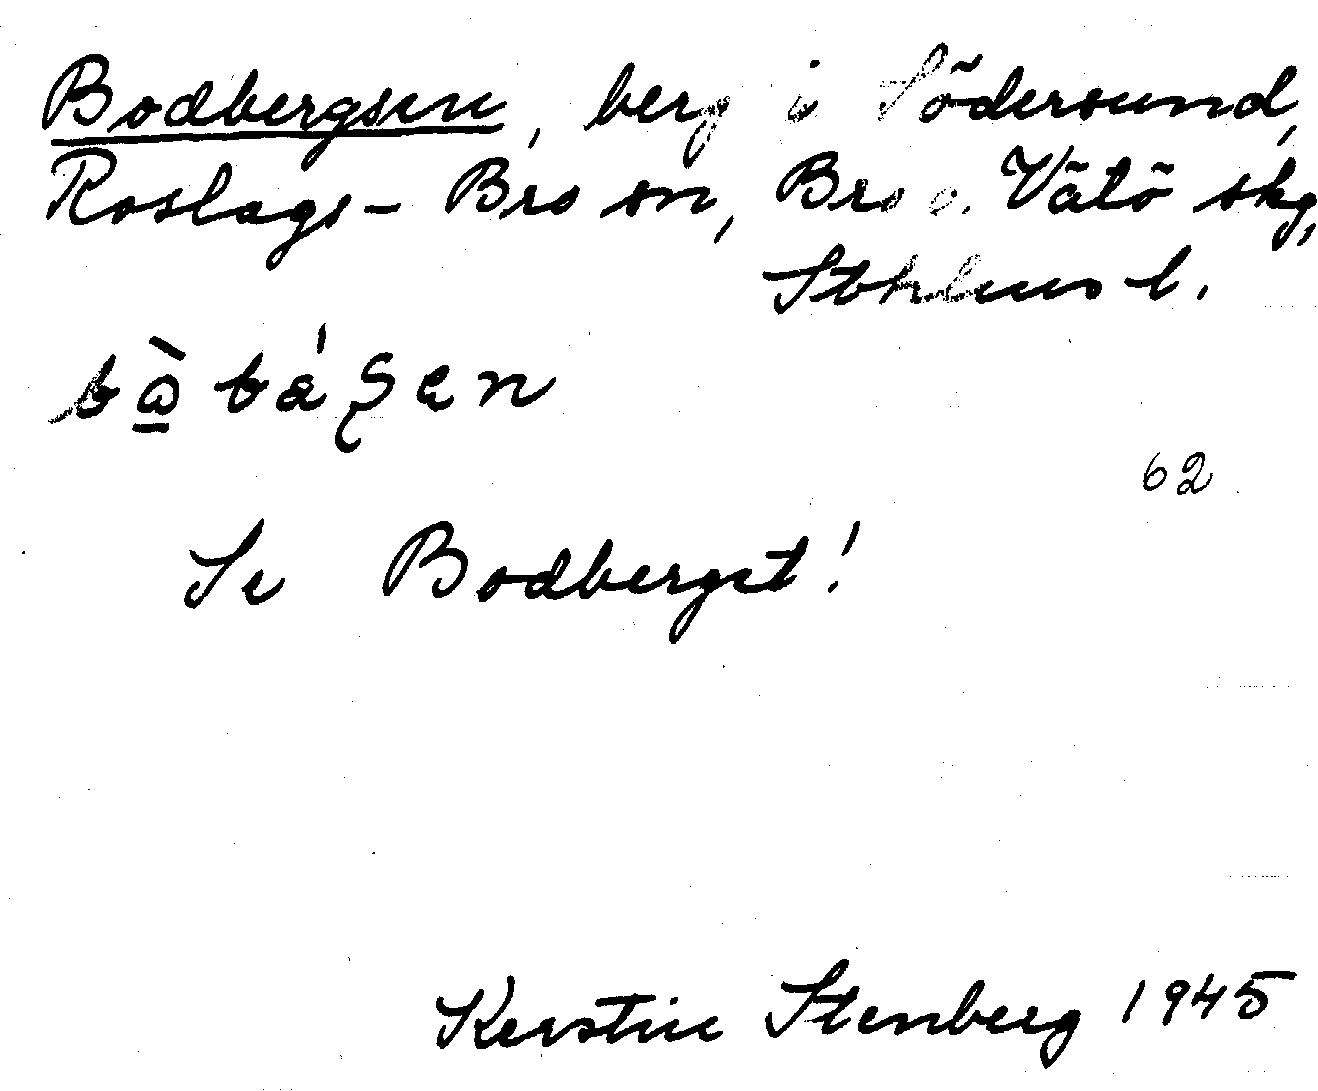 Bodbergsen, berg i Södersund,
Roslags-Bro sn, Bro o. Vätö skg,
Sthlms l.
Se Bodberget!
62
Kerstin Stenberg 1945